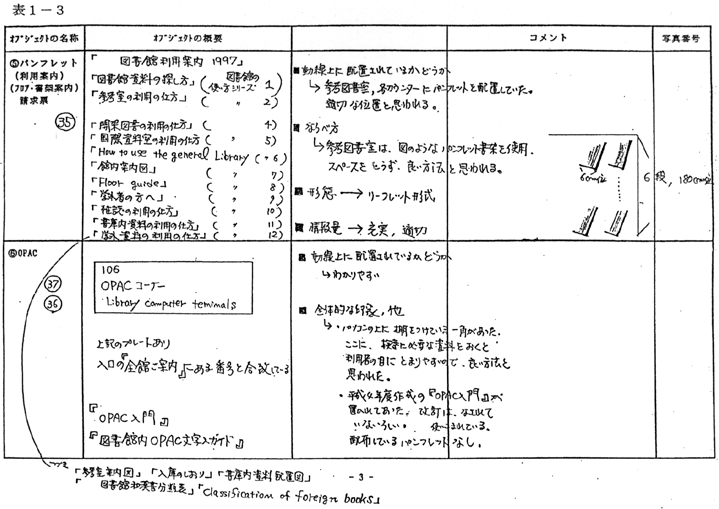 表1-3
オブジェクトの名称
オブジェクトの概要
コメント
写真番号
⑤パンフレット
(利用案内)
(フロア・書架案内)
請求票
㉟
「 図書館利用案内 1997」
「図書館資料の探し方」(図書館の使い方シリーズ 1)
「参考室の利用の仕方」( 〃 2)
「開架図書の利用の仕方」( 4)
「国際資料室の利用の仕方」( 〃 5)
「How to use the general Library」(〃6)
「館内案内図」( 〃 7)
「Floor guide」( 〃 8)
「学外者の方へ」( 〃 9)
「雑誌の利用の仕方」( 〃 10)
「書庫内資料の利用の仕方」( 〃 11)
「学外資料の利用の仕方」( 〃 12)
■動線上に配置されているか、どうか
↳参考図書室, 各カウンターにパンフレットを配置していた。
適切な位置と思われる。
■ならべ方
↳参考図書室は、図のようなパンフレット書架を使用、
スペースをとらず、良い方法と思われる。
6段, 180cm位
■形態 → リーフレット形式
■情報量 → 充実, 適切
⑥OPAC
㊲
㊱
106
OPACコーナー
Library computer terminals
上記のプレートあり
入口の『全館ご案内』にある番号と合致している
『OPAC入門』
『図書館内OPAC文字入力ガイド』
■動線上に配置されているか、どうか
↳わかりやすい
■全体的な印象, 他
↳・パソコンの上に棚をつけている一角があった。
ここに、検索に必要な資料をおくと
利用者の目にとまりやすいので、良い方法と
思われた。
・平成4年度作成の『OPAC入門』が
置かれてあった。改訂は、なされて
いないらしい。
配布しているパンフレットなし。
「参考室案内図」「入庫のしおり」「書庫内資料配置図」
「図書館和漢書分類表」「Classification of foreign books」
- 3 -